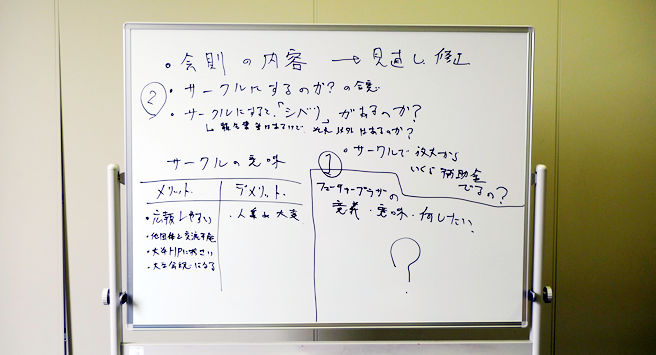 ・会則の内容 → 見直し 修正
② ・サークルにするのか?の合意
・サークルになると、「シバリ」があるのか?
それ以外はあるのか?
・サークルで放大から
いくら補助金
でるの?
サークルの意味
メリット デメリット
・広報しやすい ・人集め 大変
・他団体と交流可能
・大学HPに
・大学公認になる
①
フューチャープラザーの
意義・意味・何したい?
?